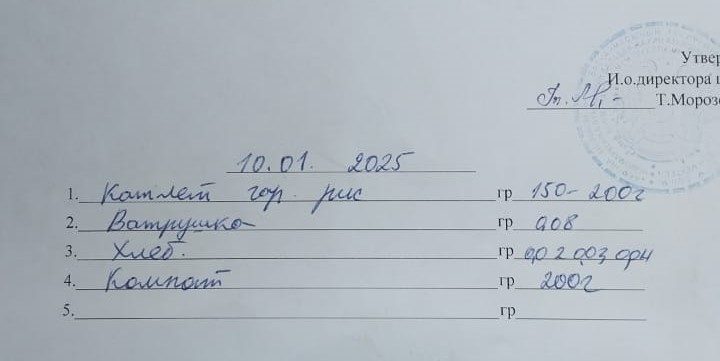 Утвер
И.о.директора
Т.Мороз
10.01. 2025
1. Катлет гар. рис гр 150-200г
2. Ватрушка гр 0,08
3. Хлеб. гр 0,02 0,03 0,04
4. Компот гр 200г
5. гр